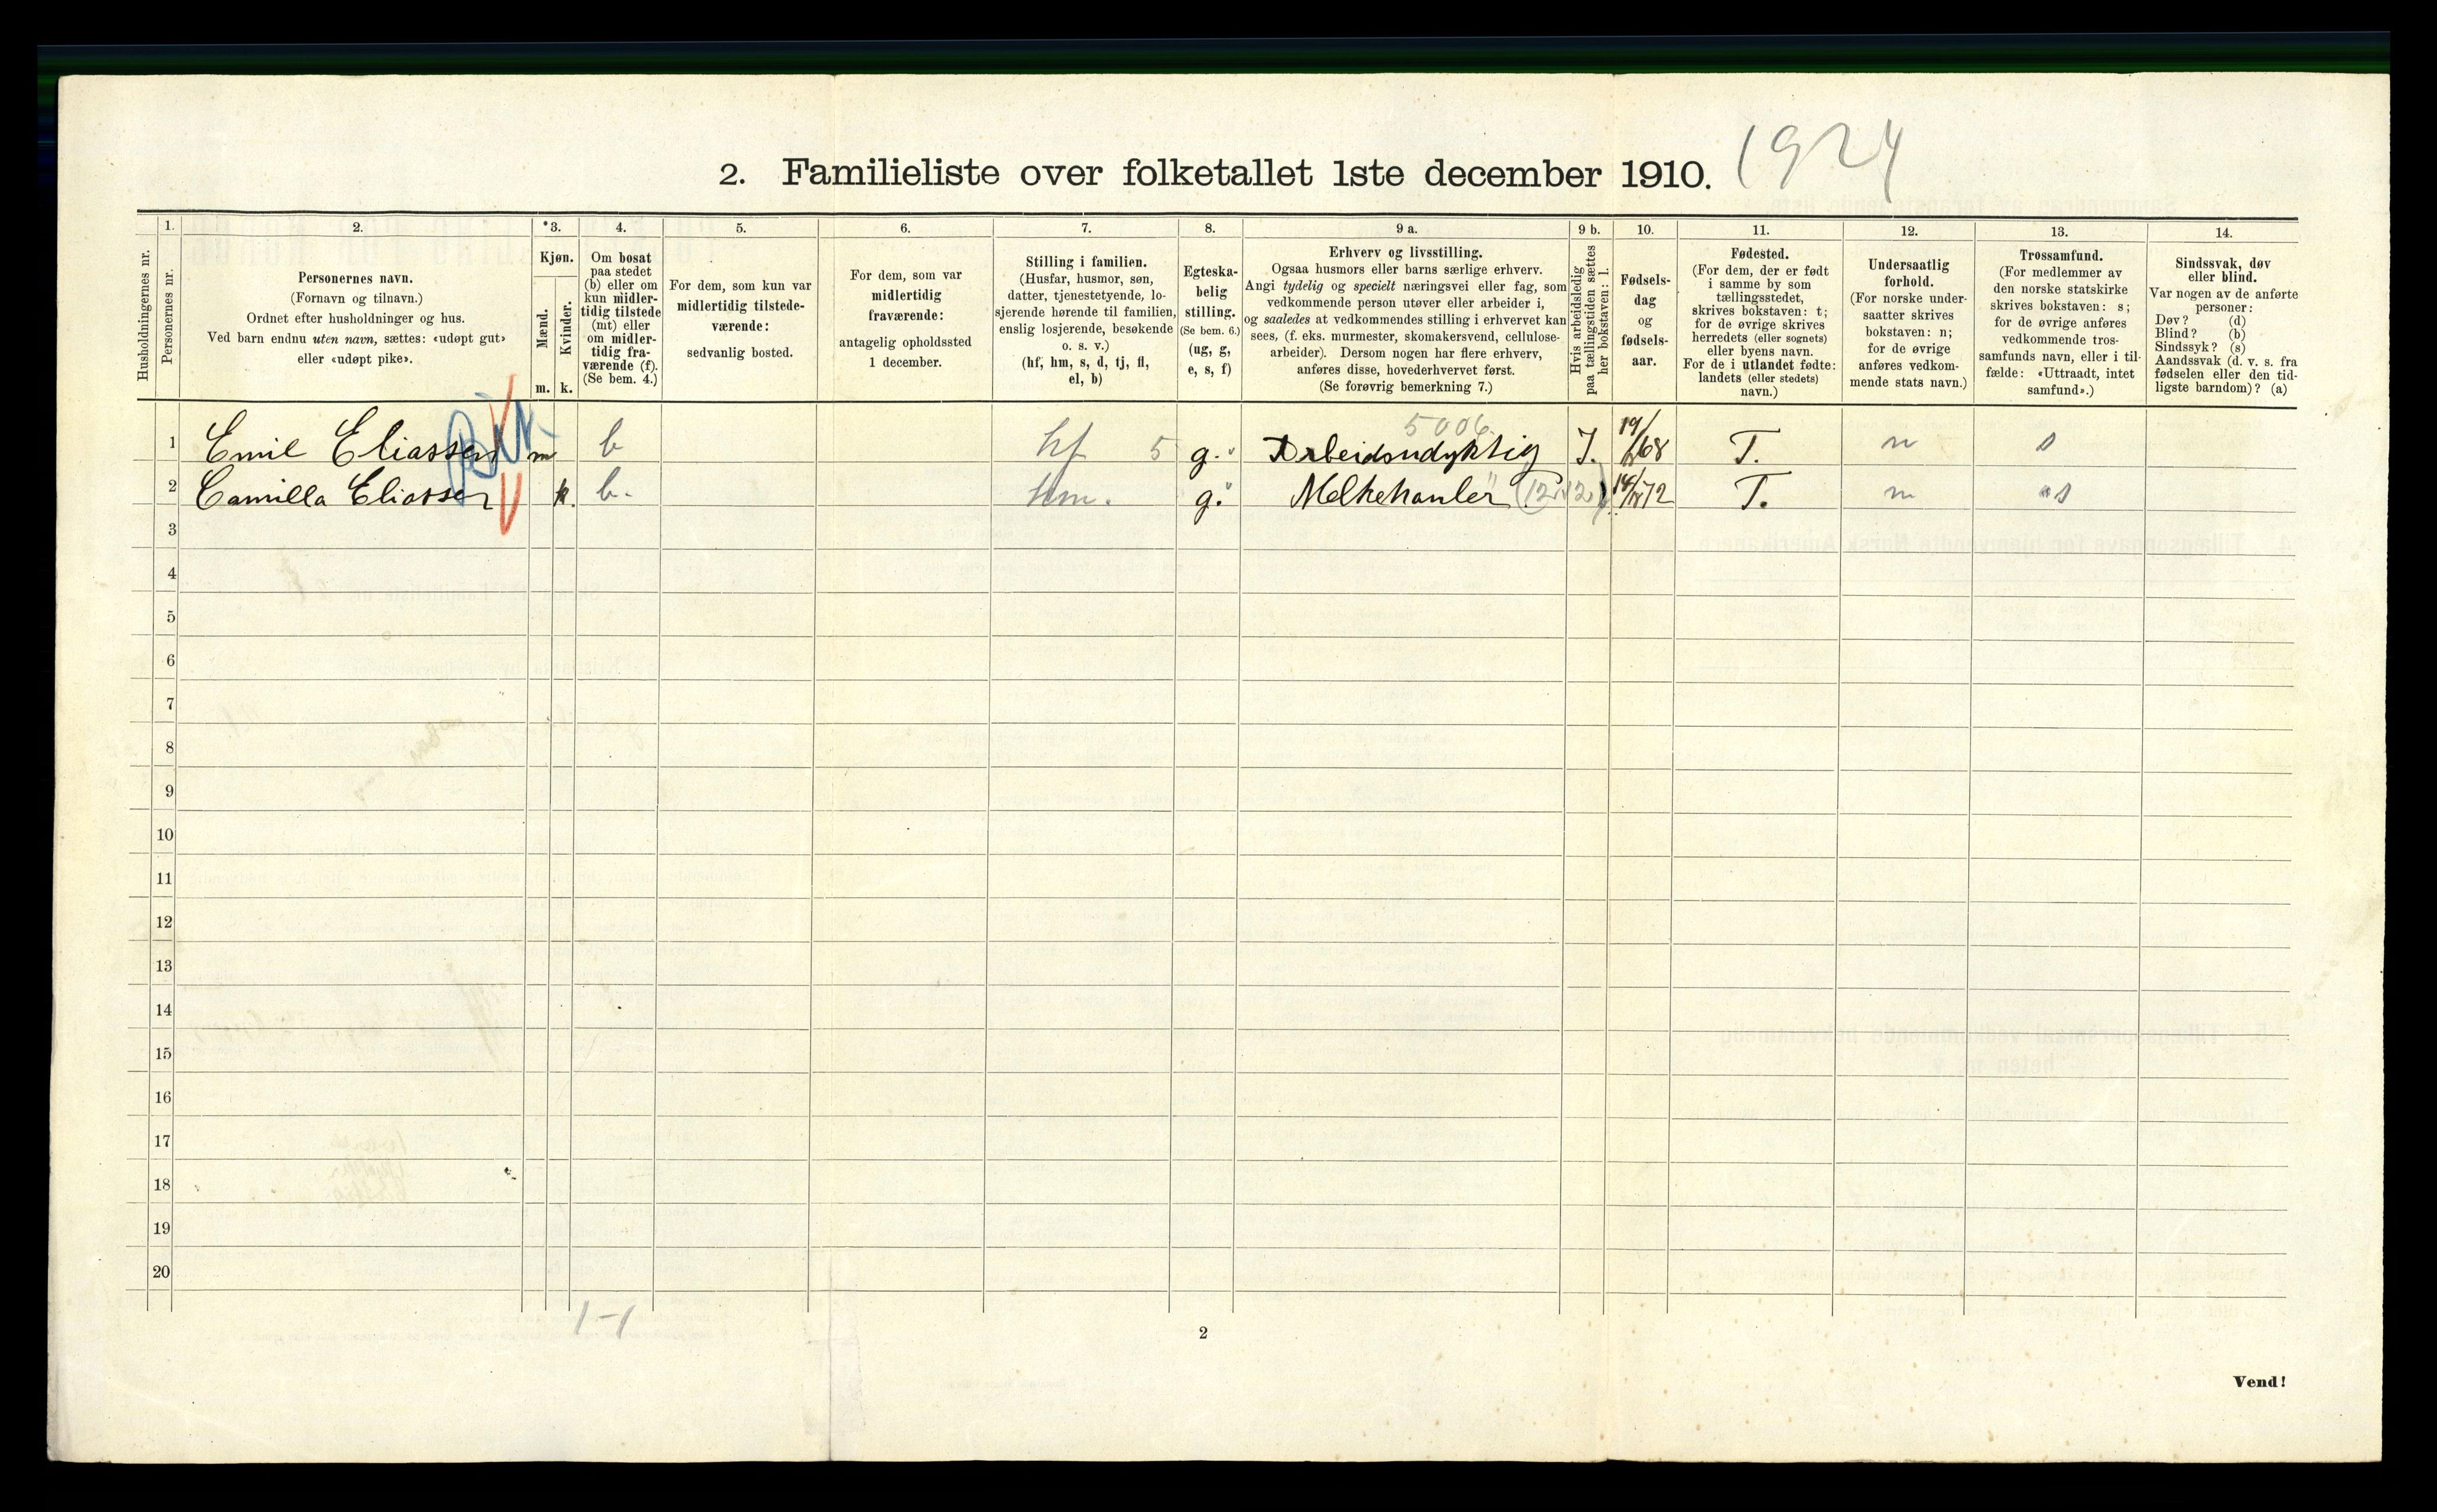 2. Familieliste over folketallet 1ste december 1910. 1924
Husholdningernes nr.
1.
Personernes nr.
2.
Personernes navn.
(Fornavn og tilnavn.)
Ordnet efter husholdninger og hus.
Ved barn endnu uten navn, sættes: «udøpt gut»
eller «udøpt pike».
*3.
Kjøn.
Mænd.
Kvinder.
m. k.
4.
Om bosat
paa stedet
(b) eller om
kun midler-
tidig tilstede
(mt) eller
om midler-
tidig fra-
værende (f).
(Se bem. 4.)
5.
For dem, som kun var
midlertidig tilstede-
værende:
sedvanlig bosted.
6.
For dem, som var
midlertidig
fraværende:
antagelig opholdssted
1 december.
7.
Stilling i familien.
(Husfar, husmor, søn,
datter, tjenestetyende, lo-
sjerende hørende til familien,
enslig losjerende, besøkende
o. s. v.)
(hf, hm, s, d, tj, fl,
el, b)
8.
Egteska-
belig
stilling.
(Se bem. 6.)
(ug, g,
e, s, f)
9 a.
Erhverv og livsstilling.
Ogsaa husmors eller barns særlige erhverv.
Angi tydelig og specielt næringsvei eller fag, som
vedkommende person utøver eller arbeider i,
og saaledes at vedkommendes stilling i erhvervet kan
sees, (f. eks. murmester, skomakersvend, cellulose-
arbeider). Dersom nogen har flere erhverv,
anføres disse, hovederhvervet først.
(Se forøvrig bemerkning 7.)
9 b.
Hvis arbeidsledig
paa tællingstiden sættes
her bokstaven: l.
10.
Fødsels-
dag
og
fødsels-
aar.
11.
Fødested.
(For dem, der er født
i samme by som
tællingsstedet,
skrives bokstaven: t;
for de øvrige skrives
herredets (eller sognets)
eller byens navn.
For de i utlandet fødte:
landets (eller stedets)
navn.)
12.
Undersaatlig
forhold.
(For norske under-
saatter skrives
bokstaven: n;
for de øvrige
anføres vedkom-
mende stats navn.)
13.
Trossamfund.
(For medlemmer av
den norske statskirke
skrives bokstaven: s;
for de øvrige anføres
vedkommende tros-
samfunds navn, eller i til-
fælde: «Uttraadt, intet
samfund».)
14.
Sindssvak, døv
eller blind.
Var nogen av de anførte
personer:
Døv? (d)
Blind? (b)
Sindssyk? (s)
Aandssvak (d. v. s. fra
fødselen eller den tid-
ligste barndom)? (a)
5006.
1 Emil Eliassen m b hf 5 g. Arbeidsudyktig 19/ 68 T. n s
2 Camilla Eliassen k. b. hm. g. Melkehanler 14/ 72 T. n s
3
4
5
6
7
8
9
10
11
12
13
14
15
16
17
18
19
20
1-1
2
Vend!